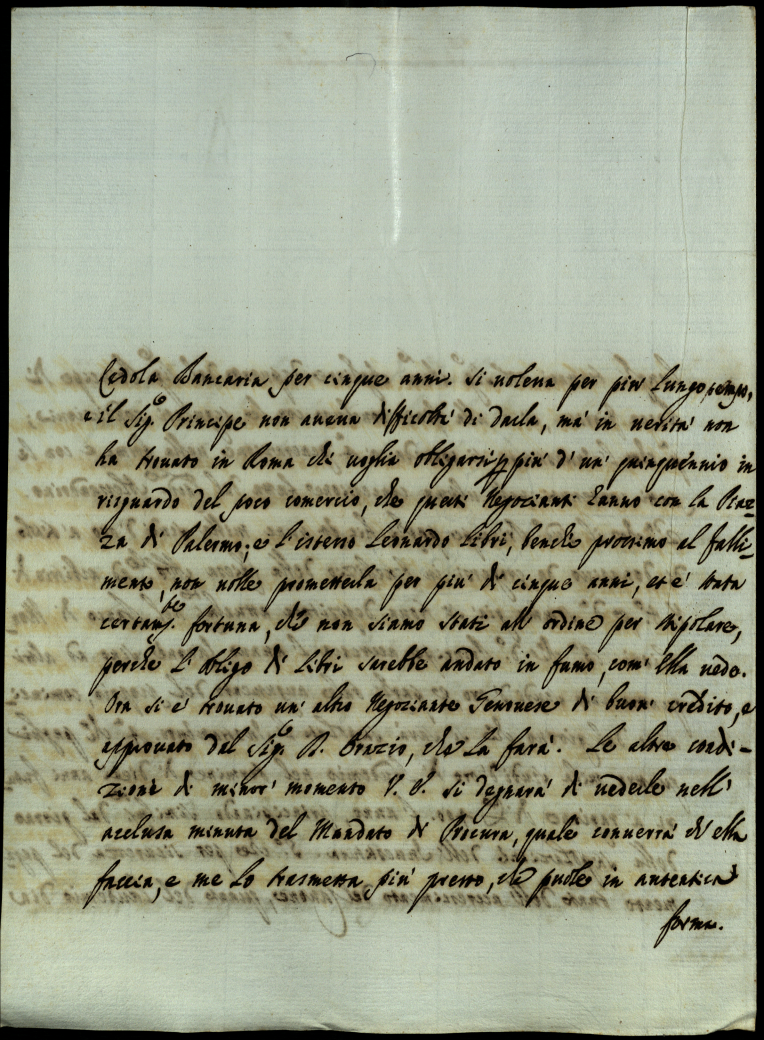 Cedola Bancaria per cinque anni. Si voleva per più lungo tempo,
e il Sigo. Principe non aveva difficoltà di darla, mà in verità non
hà trovato in Roma chi voglia obligarsi p più d'un' quinquennio in
risguardo del poco comercio, che questi Negozianti hanno con la Piaz-
za di Palermo, e l'istesso Leonardo Libri, benche prossimo al falli-
mento, non volle prometterla per più di cinque anni, et è stata
certamte. fortuna, che non siamo stati all' ordine per stipolare,
perche l'obligo di Libri sarebbe andato in fumo, com' Ella vede.
Ora si è trovato un' altro Negoziante Genovese di buon' credito, e
approvato dal Sigo. D. Orazio, che la farà. Le altre condi-
zioni di minor' momento V. S. si degnarà di vederle nell'
acclusa minuta del Mandato di Procura, quale converrà ch' ella
faccia, e me lo trasmetta più presto, che puole in autentica
forma.